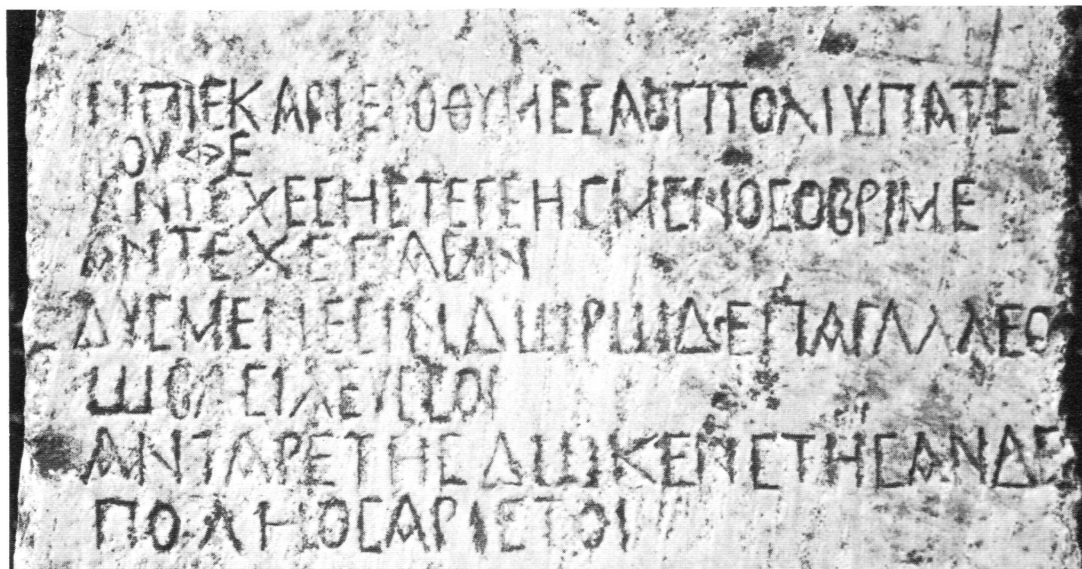 ΗΠΙΕΚΑΡΤΕΡΟΘΥΜΕϹΑΟΠΤΟΛΙΥΠΑΤΕ
ΑΝΤΕΧΕϹΗϹΤΕΓΕΗϹΜΕΝΟϹΟΒΡΙΜΕ
ΑΝΤΕΧΕΠΑϹΙΝ
ΔΥϹΜΕΝΕΕϹΙΝΔωΡωΙΔΕΠΑΓΑΛΛΕΟ
ωΒΑϹΙΛΕΥϹϹΟΙ
ΑΝΤΑΡΕΤΗϹΔωΚΕΝϹΤΗϹΑΝΔΕ
ΠΟΛΗΟϹΑΡΙϹΤΟΙ